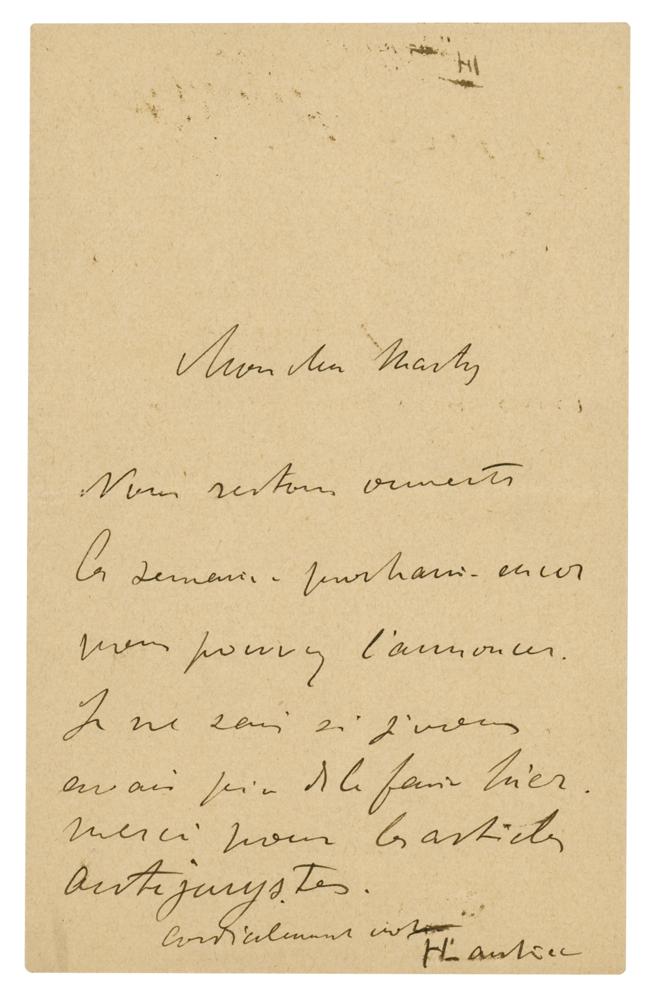 Mon cher Marty
Nous restons ouverts
la semaine prochaine encor
vous pouvez l'annoncer.
Je ne sais si j'vous
avais prié de le faire hier.
Merci pour les articles
antijurystes.
cordialement votre
HLautrec